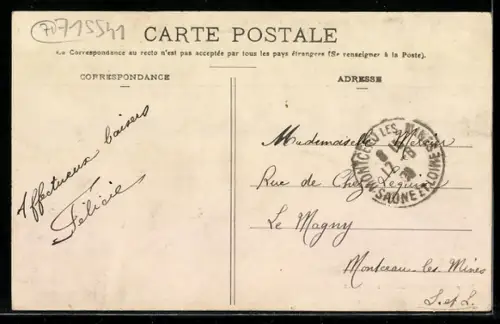 70715541
CARTE POSTALE
La Correspondance au recto n'est pas acceptée par tous les pays étrangers (Se renseigner à la Poste).
CORRESPONDANCE
ADRESSE
Affectueux baisers
Félicie
Mademoiselle Mercier
Rue de Chez
Le Magny
Montceau-les-Mines
S. et L.
MONTCEAU LES MINES
SAONE ET LOIRE